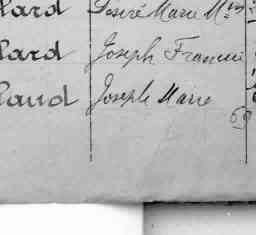 lard Désiré Marie M
lard Joseph Francis
laud Joseph Marie
69